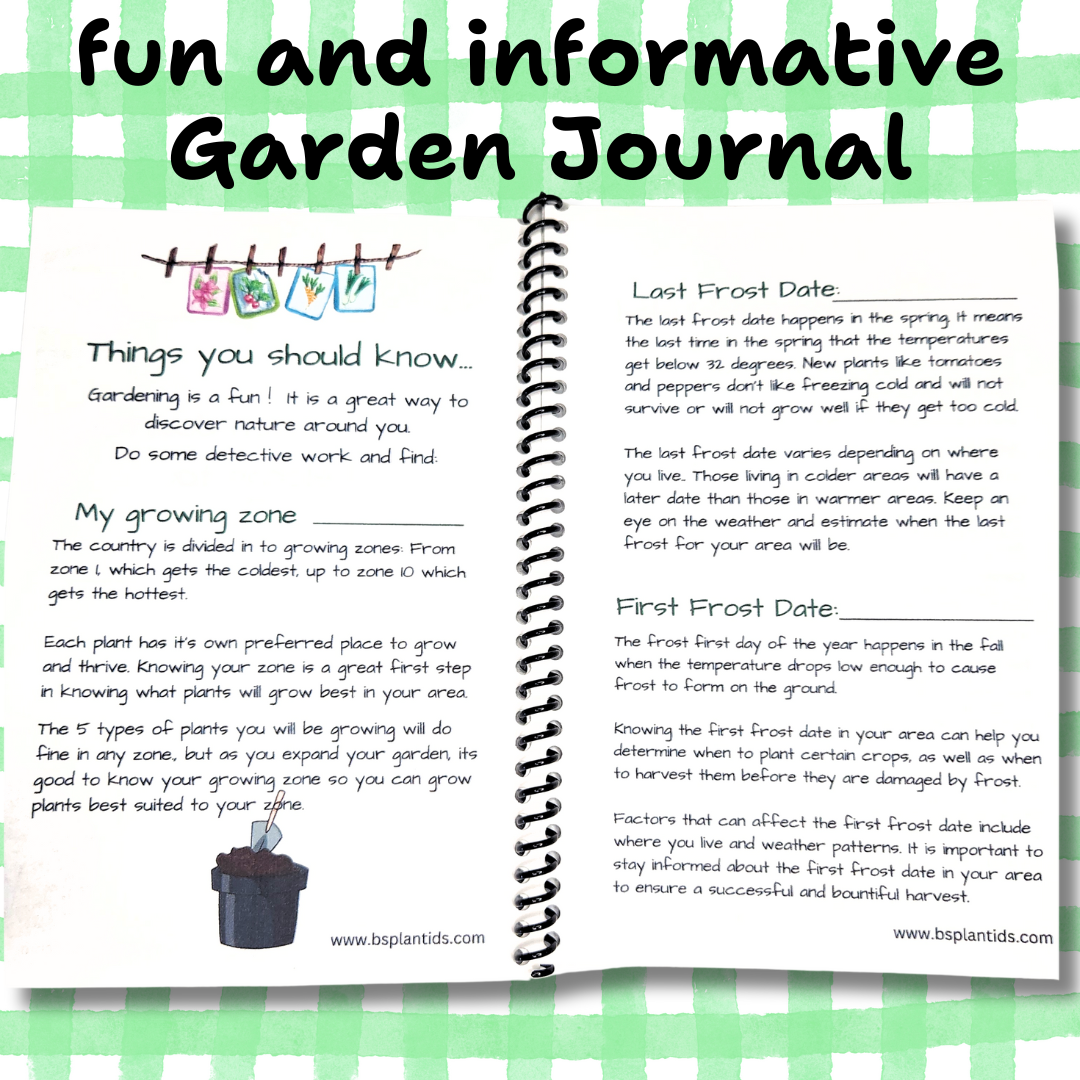 fun and informative
Garden Journal
Things you should know...
Gardening is a fun ! It is a great way to
discover nature around you.
Do some detective work and find:
My growing zone ____________
The country is divided in to growing zones: From
zone 1, which gets the coldest, up to zone 10 which
gets the hottest.
Each plant has it's own preferred place to grow
and thrive. Knowing your zone is a great first step
in knowing what plants will grow best in your area.
The 5 types of plants you will be growing will do
fine in any zone., but as you expand your garden, its
good to know your growing zone so you can grow
plants best suited to your zone.
www.bsplantids.com
Last Frost Date:______________
The last frost date happens in the spring. It means
the last time in the spring that the temperatures
get below 32 degrees. New plants like tomatoes
and peppers don't like freezing cold and will not
survive or will not grow well if they get too cold.
The last frost date varies depending on where
you live.. Those living in colder areas will have a
later date than those in warmer areas. Keep an
eye on the weather and estimate when the last
frost for your area will be.
First Frost Date:______________
The frost first day of the year happens in the fall
when the temperature drops low enough to cause
frost to form on the ground.
Knowing the first frost date in your area can help you
determine when to plant certain crops, as well as when
to harvest them before they are damaged by frost.
Factors that can affect the first frost date include
where you live and weather patterns. It is important to
stay informed about the first frost date in your area
to ensure a successful and bountiful harvest.
www.bsplantids.com